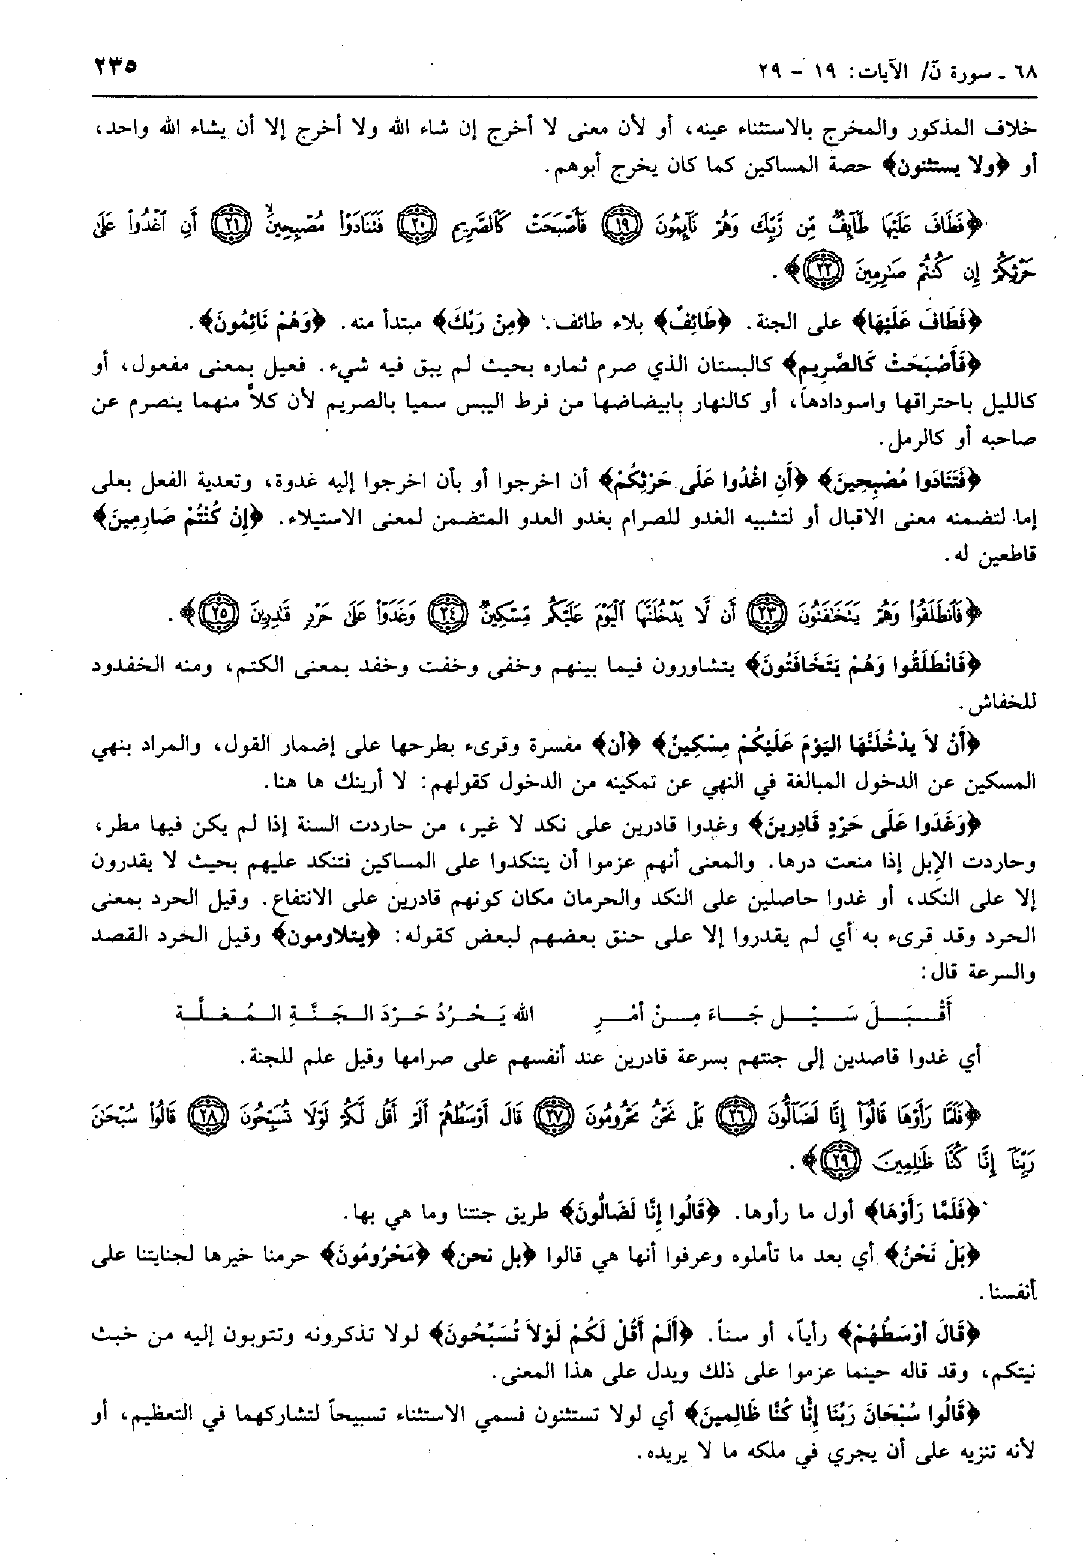 ٦٨ ـ سورة نَ/ الآيات: ١٩ - ٢٩ ٢٣٥
خلاف المذكور والمخرج بالاستثناء عينه، أو لأن معنى لا أخرج إن شاء الله ولا أخرج إلا أن يشاء الله واحد،
أو ﴿ولا يستثنون﴾ حصة المساكين كما كان يخرج أبوهم.
﴿فَطَافَ عَلَيْهَا طَآئِفٌ مِّن رَّبِّكَ وَهُمْ نَآئِمُونَ ﴿١٩﴾ فَأَصْبَحَتْ كَٱلصَّرِيمِ ﴿٢٠﴾ فَتَنَادَوْا مُصْبِحِينَ ﴿٢١﴾ أَنِ ٱغْدُوا۟ عَلَىٰ
حَرْثِكُمْ إِن كُنتُمْ صَٰرِمِينَ ﴿٢٢﴾﴾.
﴿فَطَافَ عَلَيْهَا﴾ على الجنة. ﴿طَائِفٌ﴾ بلاء طائف. ﴿مِنْ رَبِّكَ﴾ مبتدأ منه. ﴿وَهُمْ نَائِمُونَ﴾.
﴿فَأَصْبَحَتْ كَالصَّرِيمِ﴾ كالبستان الذي صرم ثماره بحيث لم يبق فيه شيء. فعيل بمعنى مفعول، أو
كالليل باحتراقها واسودادها، أو كالنهار بابيضاضها من فرط اليبس سميا بالصريم لأن كلاً منهما ينصرم عن
صاحبه أو كالرمل.
﴿فَتَنَادَوا مُصْبِحِينَ﴾ ﴿أَنِ اغْدُوا عَلَى حَرْثِكُمْ﴾ أن اخرجوا أو بأن اخرجوا إليه غدوة، وتعدية الفعل بعلى
إما لتضمنه معنى الاقبال أو لتشبيه الغدو للصرام بغدو العدو المتضمن لمعنى الاستيلاء. ﴿إِنْ كُنْتُمْ صَارِمِينَ﴾
قاطعين له.
﴿فَٱنطَلَقُوا۟ وَهُمْ يَتَخَٰفَتُونَ ﴿٢٣﴾ أَن لَّا يَدْخُلَنَّهَا ٱلْيَوْمَ عَلَيْكُم مِّسْكِينٌ ﴿٢٤﴾ وَغَدَوْا۟ عَلَىٰ حَرْدٍ قَٰدِرِينَ ﴿٢٥﴾﴾.
﴿فَانْطَلَقُوا وَهُمْ يَتَخَافَتُونَ﴾ يتشاورون فيما بينهم وخفى وخفت وخفد بمعنى الكتم، ومنه الخفدود
للخفاش.
﴿أَنْ لاَ يَدْخُلَنَّهَا اليَوْمَ عَلَيْكُمْ مِسْكِينٌ﴾ ﴿أن﴾ مفسرة وقرىء بطرحها على إضمار القول، والمراد بنهي
المسكين عن الدخول المبالغة في النهي عن تمكينه من الدخول كقولهم: لا أرينك ها هنا.
﴿وَغَدَوا عَلَى حَرْدٍ قَادِرِينَ﴾ وغدوا قادرين على نكد لا غير، من حاردت السنة إذا لم يكن فيها مطر،
وحاردت الإبل إذا منعت درها. والمعنى أنهم عزموا أن يتنكدوا على المساكين فتنكد عليهم بحيث لا يقدرون
إلا على النكد، أو غدوا حاصلين على النكد والحرمان مكان كونهم قادرين على الانتفاع. وقيل الحرد بمعنى
الحرد وقد قرىء به أي لم يقدروا إلا على حنق بعضهم لبعض كقوله: ﴿يتلاومون﴾ وقيل الحرد القصد
والسرعة قال:
أَقْبَلَ سَيْلٌ جَاءَ مِنْ أَمْرِ الله يَحْرُدُ حَرْدَ الجَنَّةِ المُغلَّة
أي غدوا قاصدين إلى جنتهم بسرعة قادرين عند أنفسهم على صرامها وقيل علم للجنة.
﴿فَلَمَّا رَأَوْهَا قَالُوٓا۟ إِنَّا لَضَآلُّونَ ﴿٢٦﴾ بَلْ نَحْنُ مَحْرُومُونَ ﴿٢٧﴾ قَالَ أَوْسَطُهُمْ أَلَمْ أَقُل لَّكُمْ لَوْلَا تُسَبِّحُونَ ﴿٢٨﴾ قَالُوا۟ سُبْحَٰنَ
رَبِّنَآ إِنَّا كُنَّا ظَٰلِمِينَ ﴿٢٩﴾﴾.
﴿فَلَمَّا رَأَوْهَا﴾ أول ما رأوها. ﴿قَالُوا إِنَّا لَضَالُّونَ﴾ طريق جنتنا وما هي بها.
﴿بَلْ نَحْنُ﴾ أي بعد ما تأملوه وعرفوا أنها هي قالوا ﴿بل نحن﴾ ﴿مَحْرُومُونَ﴾ حرمنا خيرها لجنايتنا على
أنفسنا.
﴿قَالَ أوْسَطُهُمْ﴾ رأياً، أو سناً. ﴿أَلَمْ أَقُلْ لَكُمْ لَوْلاَ تُسَبِّحُونَ﴾ لولا تذكرونه وتتوبون إليه من خبث
نيتكم، وقد قاله حينما عزموا على ذلك ويدل على هذا المعنى.
﴿قَالُوا سُبْحَانَ رَبِّنَا إِنَّا كُنَّا ظَالِمِينَ﴾ أي لولا تستثنون فسمي الاستثناء تسبيحاً لتشاركهما في التعظيم، أو
لأنه تنزيه على أن يجري في ملكه ما لا يريده.